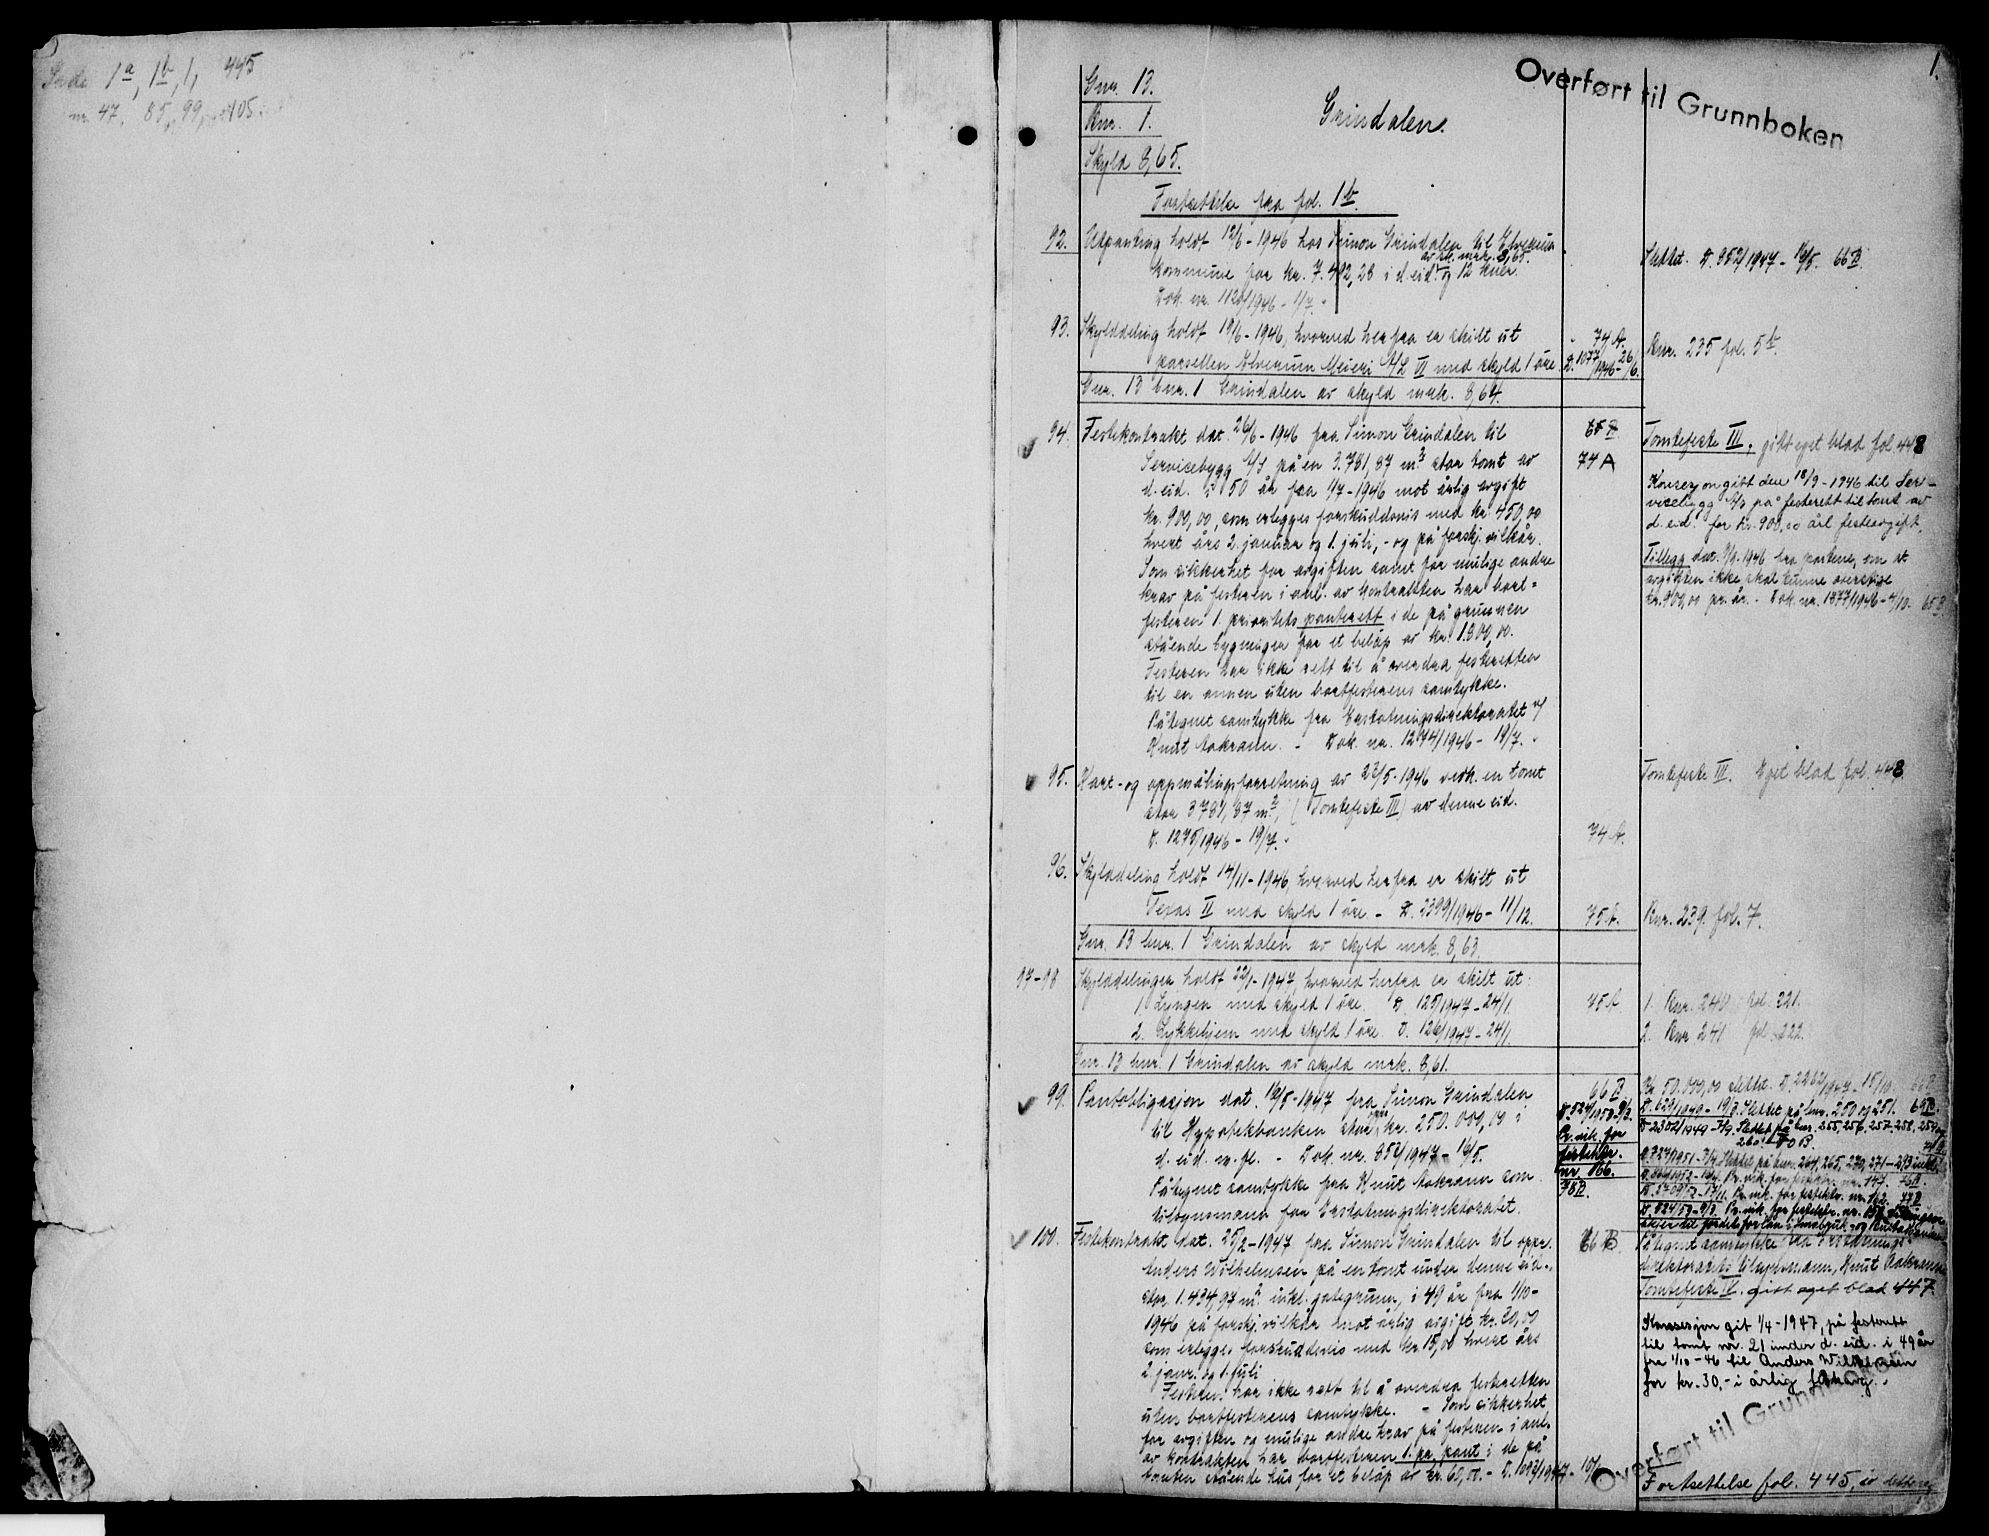 Side 1a, 1b, 1, 445
nr. 47, 85, 99, 105
1.
Overført til Grunnboken
Gnr. 13.
Bnr. 1.
Grindalen.
Skyld 8,65.
Fortsettelse fra fol. 1b.
92. Utpanting holdt 12/6-1946 hos Simon Grindalen til Elverum
av sk. mrk. 8,65.
kommune for kr. 7.412,28 i d. eid. og 12 kuer.
Dok. nr. 1120/1946 - 1/7.
Slettet. D. 852/1947 - 16/5. 66B
93. Skylddeling holdt 19/6-1946, hvorved herfra er skilt ut
parsellen Elverum Meieri A/L VI med skyld 1 øre.
74 A.
D. 1077/1946 - 26/6.
Bnr. 235 fol. 5b.
Gnr. 13 bnr. 1 Grindalen av skyld mrk. 8,64.
94. Festekontrakt dat. 26/6-1946 fra Simon Grindalen til
Servicebygg A/S på en 3.781,87 m² stor tomt av
d. eid. i 50 år fra 1/7-1946 mot årlig avgift
kr. 900,00, som erlegges forskuddsvis med kr. 450,00
hvert års 2. januar og 1. juli, - og på forskj. vilkår.
Som sikkerhet for avgiften samt for mulige andre
krav på festeren i anl. av kontrakten har bort-
festeren 1. prioritets panterett i de på grunnen
stående bygninger for et beløp av kr. 1.800,00.
Festeren har ikke rett til å overdra festeretten
til en annen uten bortfesterens samtykke.
Påtegnet samtykke fra Erstatningsdirektoratet v/
Knut Aakrann. - Dok. nr. 1274/1946 - 19/7.
65B
74A
Tomtefeste III, gitt eget blad fol 448
Konsesjon gitt den 18/9-1946 til Ser-
vicebygg A/S på festerett til tomt av
d. eid. for kr. 900,00 årl. festeavgift.
Tillegg dat. 9/9-1946 fra partene, om at
avgiften ikke skal kunne overstige
kr. 900,00 pr. år. - Dok. nr. 1877/1946 - 4/10. 65B
95. Kart- og oppmålingsforretning av 23/5-1946 vedk. en tomt
stor 3781,87 m², (Tomtefeste III) av denne eid.
D. 1275/1946 - 19/7.
74 A.
Tomtefeste III. Eget blad fol. 448
96. Skylddeling holdt 14/11-1946, hvorved herfra er skilt ut
Texas II med skyld 1 øre. - D. 2399/1946 - 11/12.
75A.
Bnr. 239 fol. 7.
Gnr. 13 bnr. 1 Grindalen av skyld mrk. 8,63.
97-98 Skylddelinger holdt 22/1-1947, hvorved herfra er skilt ut:
1. Lyngen med skyld 1 øre. D. 125/1947 - 24/1.
2. Lykkehjem med skyld 1 øre. D. 126/1947 - 24/1
75A.
1. Bnr. 240 fol. 221.
2. Bnr 241 fol. 222.
Gnr. 13 bnr. 1 Grindalen av skyld mrk. 8,61.
99. Pantobligasjon dat. 12/5-1947 fra Simon Grindalen
til Hypotekbanken stor kr. 250.000,00 i
d. eid. m. fl. - Dok. nr. 852/1947 - 16/5.
Påtegnet samtykke fra Knut Aakrann som
tilsynsmann for Erstatningsdirektoratet.
66B
D. 524/1959 - 9/3.
Pr. vik. for
festektr.
nr. 166.
78B.
Kr 50.000,00 slettet. D. 2262/1947 - 15/10. 66B
D. 623/1949 - 19/3. Slettet på bnr. 250 og 251. 69B.
D 2302/1949 - 7/9. Slettet på bnr. 255, 256, 257, 258, 259 og
260. 70B.
D. 737/1951 - 7/4. Slettet på bnr. 264, 265, 270, 271-293 inkl.
Pr. vik. for festektr. nr. 147. 75B.
Pr. vik. for festektr. nr. 162. 77B
Påtegnet samtykke fra Erstatnings-
direktoratets tilsynsmann, Knut Aakrann
100. Festekontrakt dat. 25/2-1947 fra Simon Grindalen til oppr.
Anders Wilhelmsen på en tomt under denne eid.,
stor 1.434,97 m² inkl. gategrunn, i 49 år fra 1/10-
1946 på forskj. vilkår mot årlig avgift kr. 30,00
som erlegges forskuddsvis med kr 15,00 hvert års
2. janr. og 1. juli
Festeren har ikke rett til å overdra festeretten
uten bortfesterens samtykke. - Som sikkerhet
for avgiften og mulige andre krav på festeren i anl.
av kontrakten har bortfesteren 1. pr. pant i de på
tomten stående hus for et beløp av kr. 60,00. - D. 1093/1947 - 10/6
66B.
Tomtefeste IV. gitt eget blad 447
Konsesjon git 1/4-1947, på festerett
til tomt nr. 21 under d. eid. i 49 år
fra 1/10-46 til Anders Wilhelmsen
for kr. 30,- i årlig festeavg.
Overført til Grunnboken
Fortsettelse fol. 445, av dette reg.